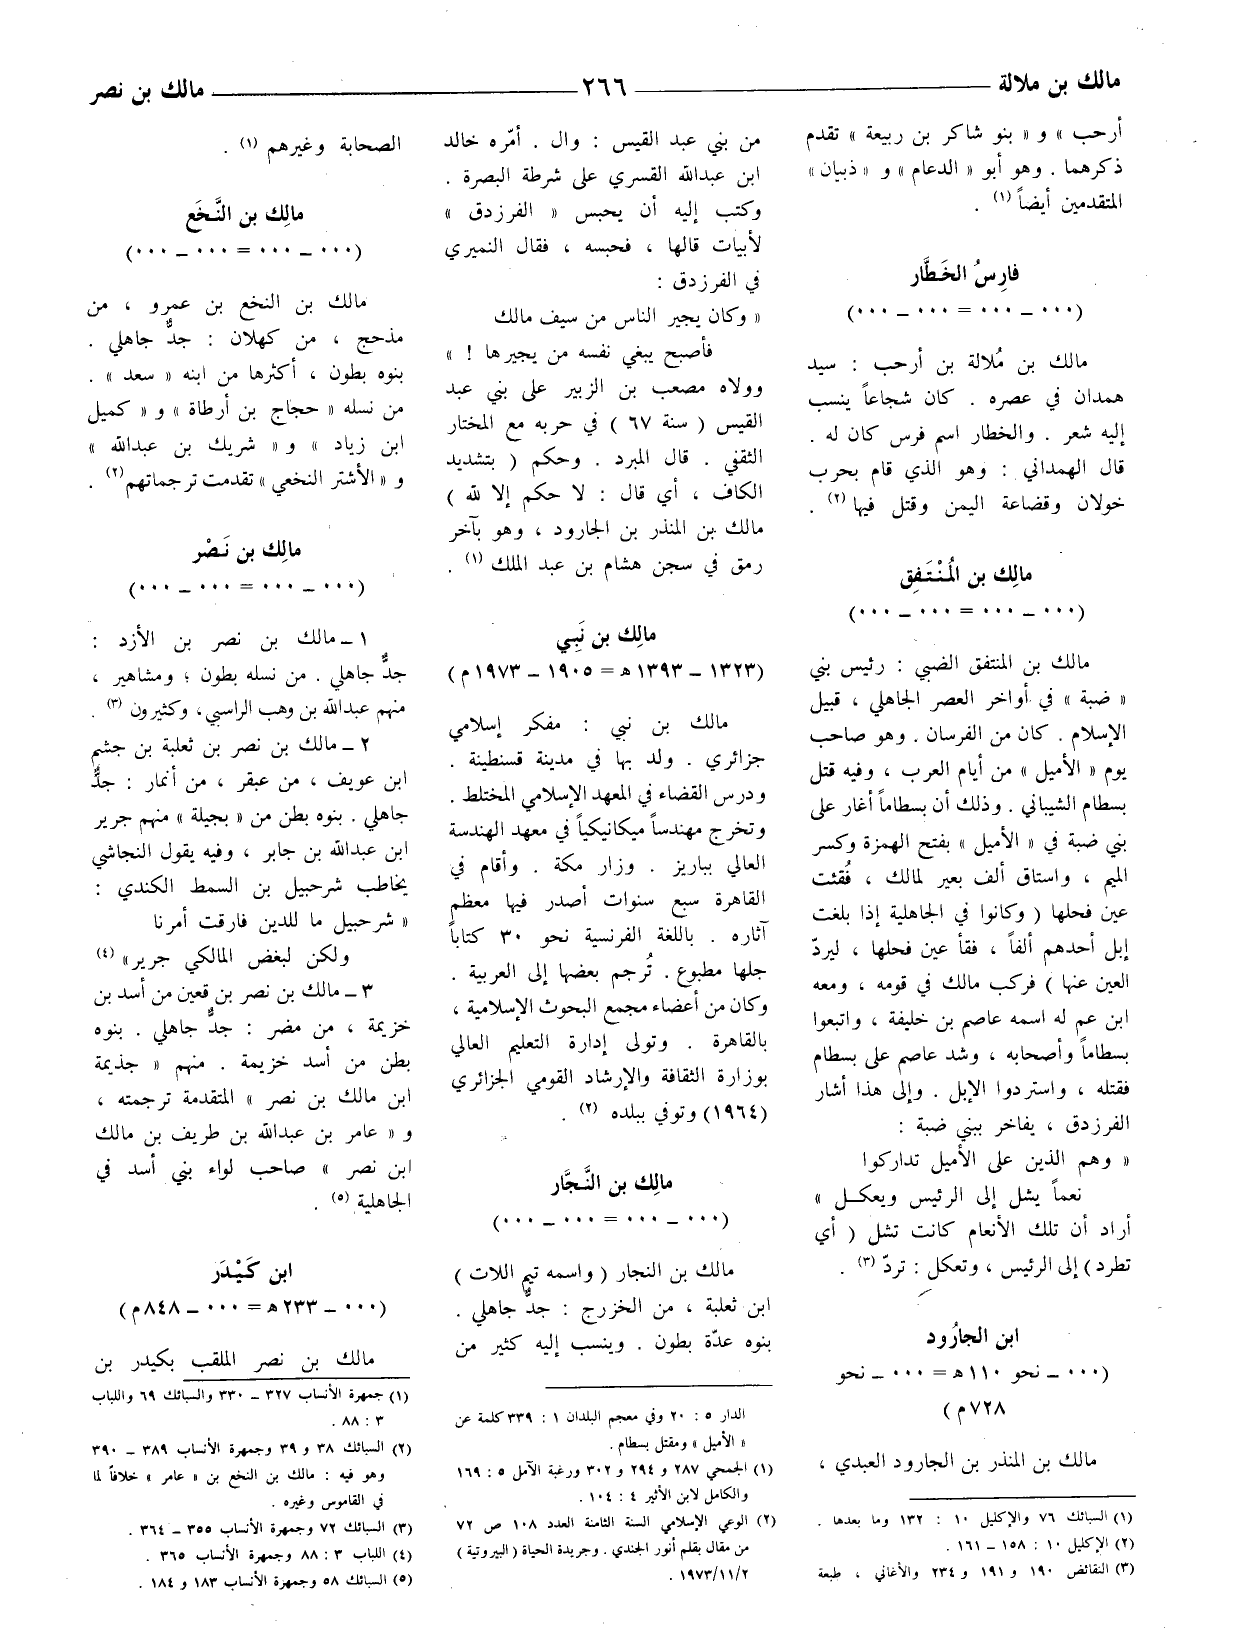 مالك بن ملالة
٢٦٦
مالك بن نصر
أرحب » و « بنو شاكر بن ربيعة » تقدم
ذكرهما . وهو أبو « الدعام » و « ذبيان »
المتقدمين أيضاً (١) .
فارِسُ الخَطَّار
(٠٠٠ ــ ٠٠٠ = ٠٠٠ ــ ٠٠٠)
مالك بن مُلالة بن أرحب : سيد
همدان في عصره . كان شجاعاً ينسب
إليه شعر . والخطار اسم فرس كان له .
قال الهمداني : وهو الذي قام بحرب
خولان وقضاعة اليمن وقتل فيها (٢) .
مالِك بن المُنْتَفِق
(٠٠٠ ــ ٠٠٠ = ٠٠٠ ــ ٠٠٠)
مالك بن المنتفق الضبي : رئيس بني
« ضبة » في أواخر العصر الجاهلي ، قبيل
الإسلام . كان من الفرسان . وهو صاحب
يوم « الأميل » من أيام العرب ، وفيه قتل
بسطام الشيباني . وذلك أن بسطاماً أغار على
بني ضبة في « الأميل » بفتح الهمزة وكسر
الميم ، واستاق ألف بعير لمالك ، فُقئت
عين فحلها ( وكانوا في الجاهلية إذا بلغت
إبل أحدهم ألفاً ، فقأ عين فحلها ، ليردّ
العين عنها ) فركب مالك في قومه ، ومعه
ابن عم له اسمه عاصم بن خليفة ، واتبعوا
بسطاماً وأصحابه ، وشد عاصم على بسطام
فقتله ، واستردوا الإبل . وإلى هذا أشار
الفرزدق ، يفاخر ببني ضبة :
« وهم الذين على الأميل تداركوا
نعماً يشل إلى الرئيس ويعكل »
أراد أن تلك الأنعام كانت تشل ( أي
تطرد ) إلى الرئيس ، وتعكل : تردّ (٣) .
ابن الجارُود
(٠٠٠ ــ نحو ١١٠ هـ = ٠٠٠ ــ نحو
٧٢٨ م )
مالك بن المنذر بن الجارود العبدي ،
(١) السبائك ٧٦ والإكليل ١٠ : ١٣٢ وما بعدها .
(٢) الإكليل ١٠ : ١٥٨ ــ ١٦١ .
(٣) النقائض ١٩٠ و ١٩١ و ٢٣٤ والأغاني ، طبعة
من بني عبد القيس : وال . أمّره خالد
ابن عبدالله القسري على شرطة البصرة .
وكتب إليه أن يحبس « الفرزدق »
لأبيات قالها ، فحبسه ، فقال النميري
في الفرزدق :
« وكان يجير الناس من سيف مالك
فأصبح يبغي نفسه من يجيرها ! »
وولاه مصعب بن الزبير على بني عبد
القيس ( سنة ٦٧ ) في حربه مع المختار
الثقفي . قال المبرد . وحكم ( بتشديد
الكاف ، أي قال : لا حكم إلا لله )
مالك بن المنذر بن الجارود ، وهو بآخر
رمق في سجن هشام بن عبد الملك (١) .
مالِك بن نَبِي
(١٣٢٣ ــ ١٣٩٣ هـ = ١٩٠٥ ــ ١٩٧٣ م )
مالك بن نبي : مفكر إسلامي
جزائري . ولد بها في مدينة قسنطينة .
ودرس القضاء في المعهد الإسلامي المختلط .
وتخرج مهندساً ميكانيكياً في معهد الهندسة
العالي بباريز . وزار مكة . وأقام في
القاهرة سبع سنوات أصدر فيها معظم
آثاره . باللغة الفرنسية نحو ٣٠ كتاباً
جلها مطبوع . تُرجم بعضها إلى العربية .
وكان من أعضاء مجمع البحوث الإسلامية ،
بالقاهرة . وتولى إدارة التعليم العالي
بوزارة الثقافة والإرشاد القومي الجزائري
(١٩٦٤) وتوفي ببلده (٢) .
مالِك بن النَّجَّار
(٠٠٠ ــ ٠٠٠ = ٠٠٠ ــ ٠٠٠)
مالك بن النجار ( واسمه تيم اللات )
ابن ثعلبة ، من الخزرج : جدٌّ جاهلي .
بنوه عدّة بطون . وينسب إليه كثير من
الدار ٥ : ٢٠ وفي معجم البلدان ١ : ٣٣٩ كلمة عن
« الأميل » ومقتل بسطام .
(١) الجمحي ٢٨٧ و ٢٩٤ و ٣٠٢ ورغبة الآمل ٥ : ١٦٩
والكامل لابن الأثير ٤ : ١٠٤ .
(٢) الوعي الإسلامي السنة الثامنة العدد ١٠٨ ص ٧٢
من مقال بقلم أنور الجندي . وجريدة الحياة ( البيروتية )
١٩٧٣/١١/٢ .
الصحابة وغيرهم (١) .
مالِك بن النَّخَع
(٠٠٠ ــ ٠٠٠ = ٠٠٠ ــ ٠٠٠)
مالك بن النخع بن عمرو ، من
مذحج ، من كهلان : جدٌّ جاهلي .
بنوه بطون ، أكثرها من ابنه « سعد » .
من نسله « حجاج بن أرطاة » و « كميل
ابن زياد » و « شريك بن عبدالله »
و « الأشتر النخعي » تقدمت ترجماتهم (٢) .
مالِك بن نَصْر
(٠٠٠ ــ ٠٠٠ = ٠٠٠ ــ ٠٠٠)
١ ــ مالك بن نصر بن الأزد :
جدٌّ جاهلي . من نسله بطون ؛ ومشاهير ،
منهم عبدالله بن وهب الراسبي ، وكثيرون (٣) .
٢ ــ مالك بن نصر بن ثعلبة بن جشم
ابن عويف ، من عبقر ، من أنمار : جدٌّ
جاهلي . بنوه بطن من « بجيلة » منهم جرير
ابن عبدالله بن جابر ، وفيه يقول النجاشي
يخاطب شرحبيل بن السمط الكندي :
« شرحبيل ما للدين فارقت أمرنا
ولكن لبغض المالكي جرير» (٤)
٣ ــ مالك بن نصر بن قعين من أسد بن
خزيمة ، من مضر : جدٌّ جاهلي . بنوه
بطن من أسد خزيمة . منهم « جذيمة
ابن مالك بن نصر » المتقدمة ترجمته ،
و « عامر بن عبدالله بن طريف بن مالك
ابن نصر » صاحب لواء بني أسد في
الجاهلية (٥) .
ابن كَيْدَر
(٠٠٠ ــ ٢٣٣ هـ = ٠٠٠ ــ ٨٤٨ م )
مالك بن نصر الملقب بكيدر بن
(١) جمهرة الأنساب ٣٢٧ ــ ٣٣٠ والسبائك ٦٩ واللباب
٣ : ٨٨ .
(٢) السبائك ٣٨ و ٣٩ وجمهرة الأنساب ٣٨٩ ــ ٣٩٠
وهو فيه : مالك بن النخع بن « عامر » خلافاً لما
في القاموس وغيره .
(٣) السبائك ٧٢ وجمهرة الأنساب ٣٥٥ ــ ٣٦٤ .
(٤) اللباب ٣ : ٨٨ وجمهرة الأنساب ٣٦٥ .
(٥) السبائك ٥٨ وجمهرة الأنساب ١٨٣ و ١٨٤ .